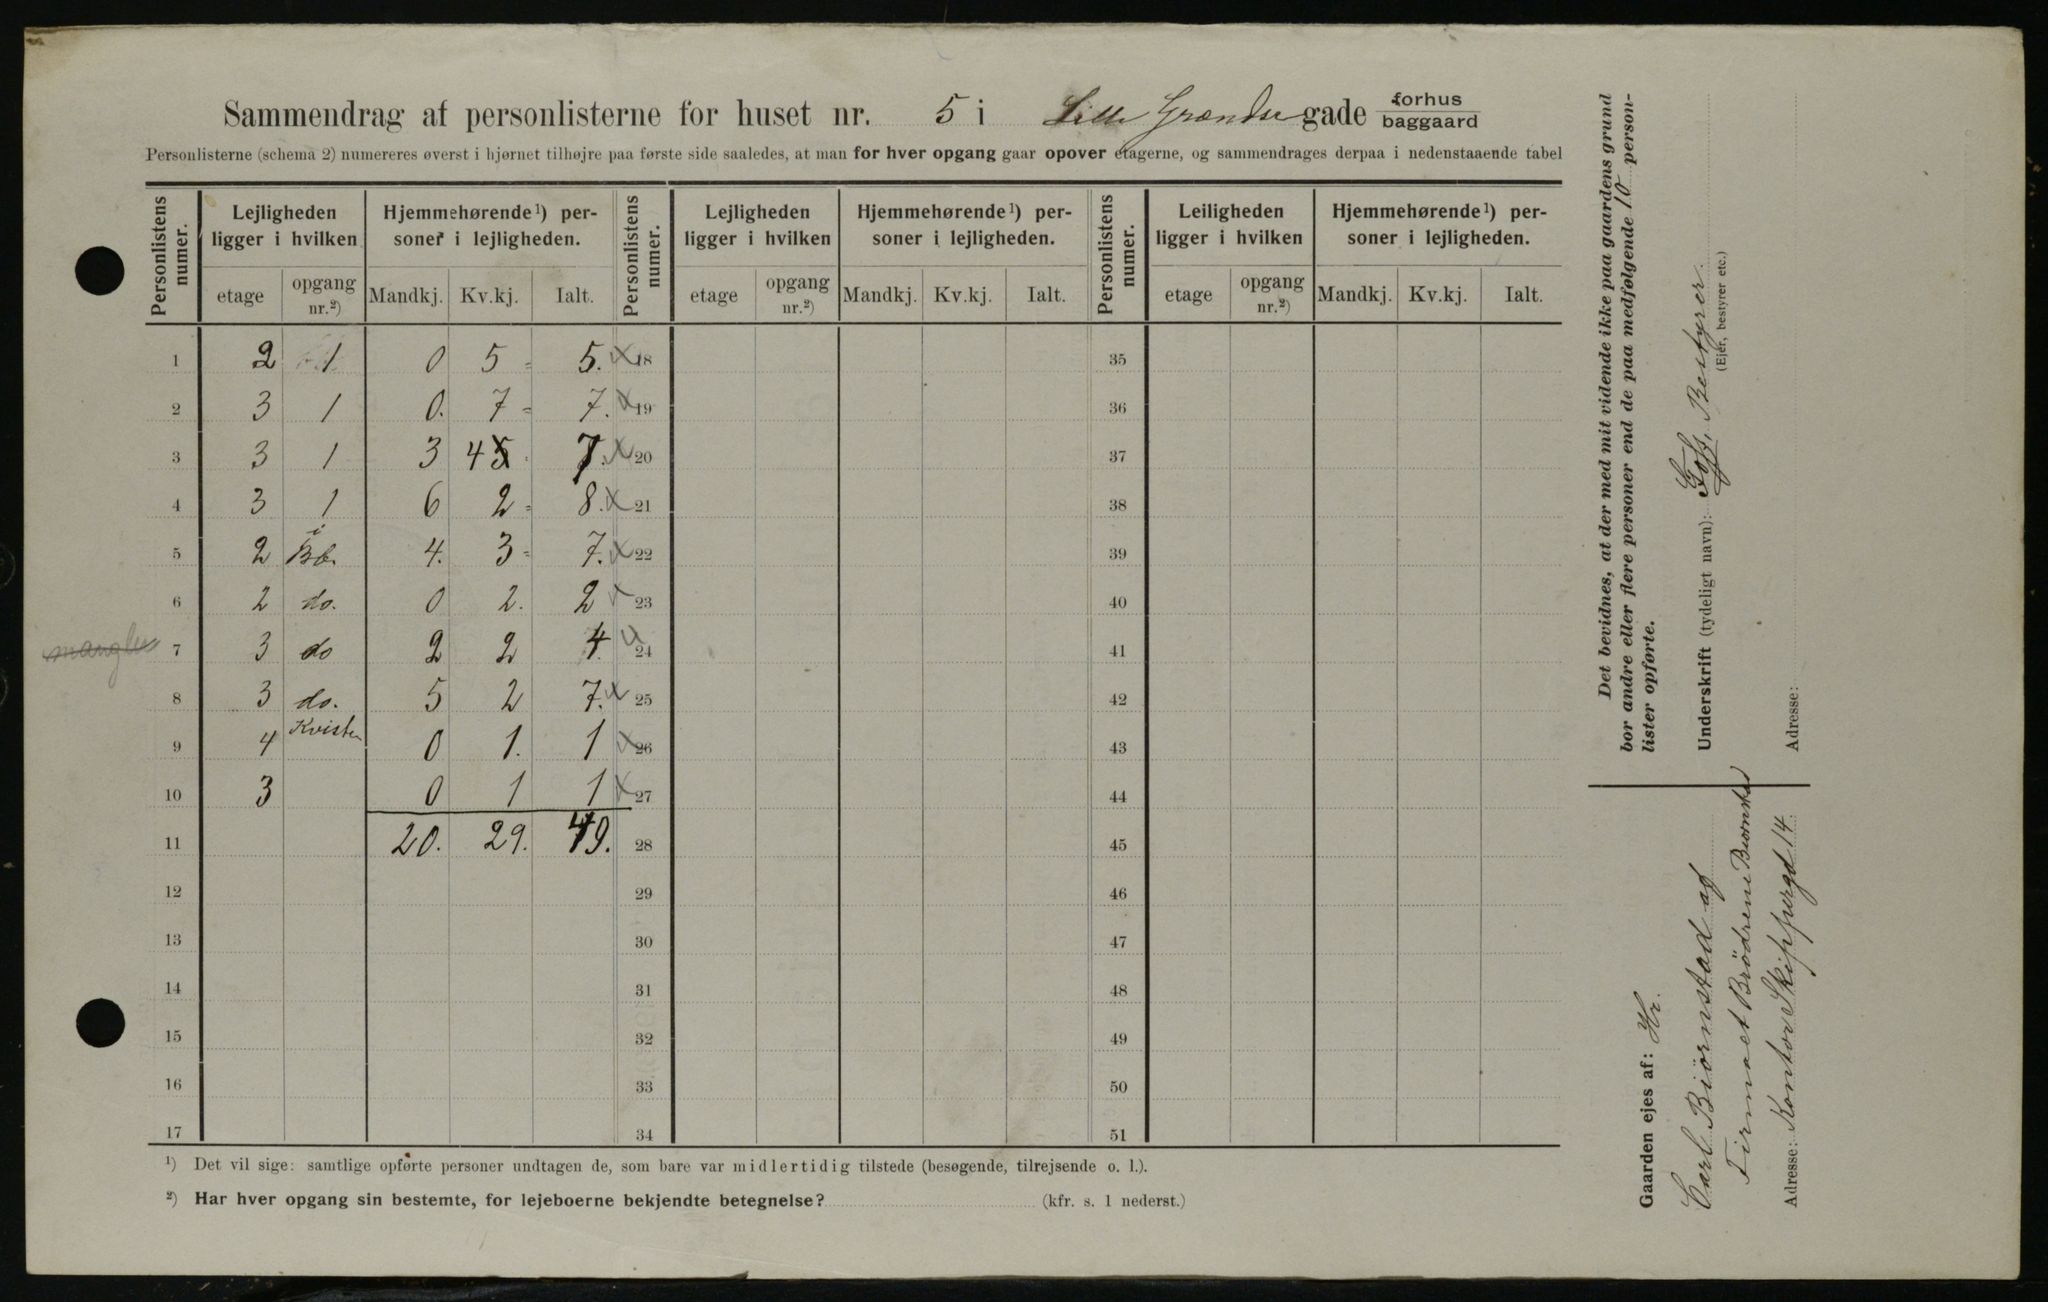 Sammendrag af personlisterne for huset nr. 5 i Lille Grændse gade forhus
baggaard
Personlisterne (schema 2) numereres øverst i hjørnet tilhøjre paa første side saaledes, at man for hver opgang gaar opover etagerne, og sammendrages derpaa i nedenstaaende tabel
Personlistens numer. Lejligheden ligger i hvilken Hjemmehørende¹) personer i lejligheden. Personlistens numer. Lejligheden ligger i hvilken Hjemmehørende¹) personer i lejligheden. Personlistens numer. Leiligheden ligger i hvilken Hjemmehørende¹) personer i lejligheden.
etage opgang nr.²) Mandkj. Kv.kj. Ialt. etage opgang nr.²) Mandkj. Kv.kj. Ialt. etage opgang nr.²) Mandkj. Kv.kj. Ialt.
1 2 1 0 5 = 5. x 18 35
2 3 1 0. 7 = 7. x 19 36
3 3 1 3 4 5 7. x 20 37
4 3 1 6 2 = 8. x 21 38
5 2 i Bb. 4. 3 = 7. x 22 39
6 2 do. 0 2. 2 x 23 40
mangler 7 3 do 2 2 4 x 24 41
8 3 do. 5 2 7. x 25 42
9 4 Kvisten 0 1. 1 x 26 43
10 3 0 1 1 x 27 44
11 20. 29. 49. 28 45
12 29 46
13 30 47
14 31 48
15 32 49
16 33 50
17 34 51
¹) Det vil sige: samtlige opførte personer undtagen de, som bare var midlertidig tilstede (besøgende, tilrejsende o. l.).
²) Har hver opgang sin bestemte, for lejeboerne bekjendte betegnelse? (kfr. s. 1 nederst.)
Det bevidnes, at der med mit vidende ikke paa gaardens grund
bor andre eller flere personer end de paa medfølgende 10 person-
lister opførte.
Underskrift (tydeligt navn): Bestyrer.
(Ejer, bestyrer etc.)
Adresse:
Gaarden ejes af: Hr.
Carl Biørnstad af
Firmaet Brödrene
Adresse: Kontor Skippergd 14.